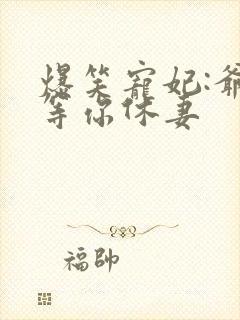 爆笑寵妃:爺
等你休妻
福帥